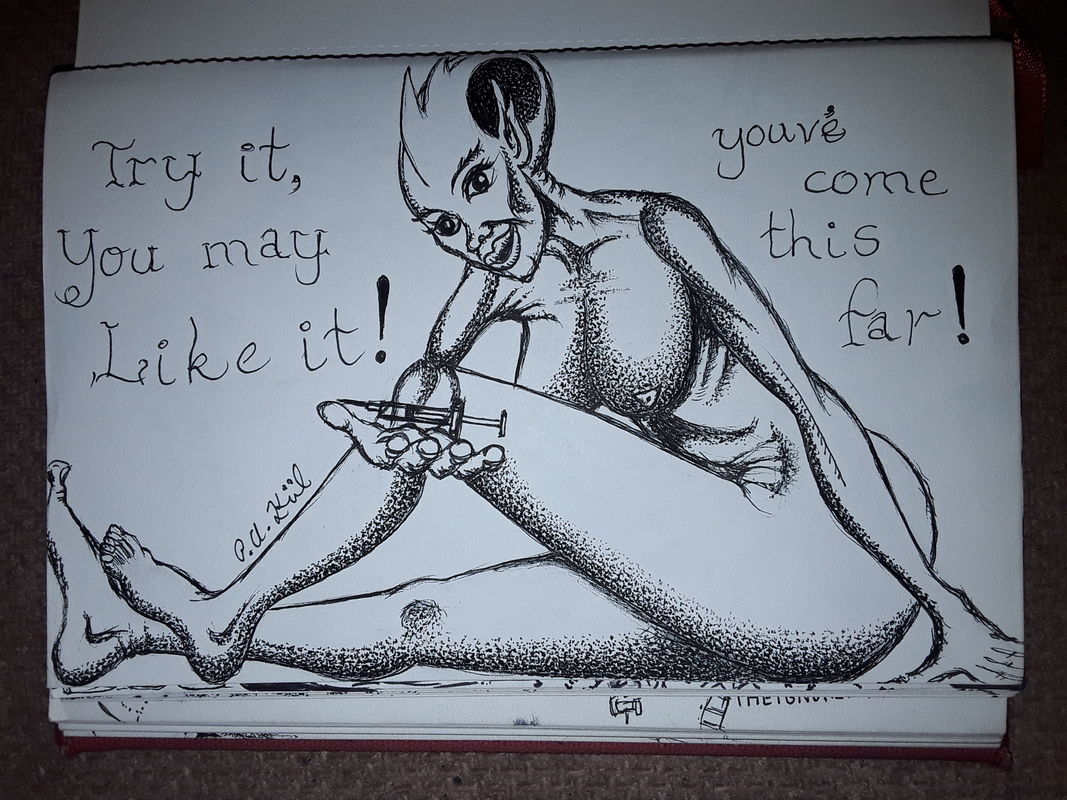 Try it,
You may
Like it!
youv'e
come
this
far!